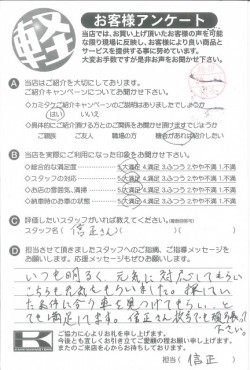 軽
お客様アンケート
当店では、お買い上げ頂いたお客様の声を可能
な限り現場に反映し、お客様により良い商品と
サービスを提供する事に努めています。
大変お手数ですが是非お声をお聞かせ下さい。
A 当店はご紹介を大切にしております。
ご紹介キャンペーンについてお聞かせ下さい。
◇カミタケご紹介キャンペーンのご説明はありましたでしょうか
はい いいえ
◇具体的にご紹介頂ける方とのご関係をお聞かせ頂けますでしょうか
ご親族 ご友人 職場の方 機会があれば紹介したい
B 当店を実際にご利用になった印象をお聞かせ下さい。
◇総合的な満足度 5.大満足 4.満足 3.ふつう 2.やや不満 1.不満
◇スタッフの対応 5.大満足 4.満足 3.ふつう 2.やや不満 1.不満
◇お店の雰囲気、清掃 5.大満足 4.満足 3.ふつう 2.やや不満 1.不満
◇納車時のお車の状態 5.大満足 4.満足 3.ふつう 2.やや不満 1.不満
C 評価したいスタッフがいれば教えてください。
スタッフ名( 信正さん )
D 担当させて頂きましたスタッフへのご指摘、ご指導メッセージを
お願いします。応援メッセージもぜひお願いします。
いつも明るく、元気に対応してもらい
こちらも元気をもらいました。探してい
た条件に合う車を見つけてもらい、と
ても満足してます。信正さん
下さい。
K
ご協力に心よりお礼を申し上げます。
今後とも宜しくお引き立てご愛顧の程お願い申し上げます。
またのご来店を心からお待ちしております。
担当( 信正 )